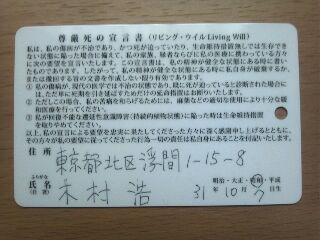 尊厳死の宣言書(リビング・ウイル Living Will)
私は、私の傷病が不治であり、かつ死が迫っていたり、生命維持措置無しでは生存でき
ない状態に陥った場合に備えて、私の家族、縁者ならびに私の医療に携わっている方々
に次の要望を宣言いたします。この宣言書は、私の精神が健全な状態にある時に書い
たものであります。したがって、私の精神が健全な状態にある時に私自身が破棄するか、
または撤回する旨の文書を作成しない限り有効であります。
①私の傷病が、現代の医学では不治の状態であり、既に死が迫っていると診断された場合に
は、ただ単に死期を引き延ばすためだけの延命措置はお断りいたします。
②ただしこの場合、私の苦痛を和らげるためには、麻薬などの適切な使用により十分な緩
和医療を行ってください。
③私が回復不能な遷延性意識障害(持続的植物状態)に陥った時は生命維持措置
を取りやめてください。
以上、私の宣言による要望を忠実に果たしてくださった方々に深く感謝申し上げるとともに、
その方々が私の要望に従ってくださった行為一切の責任は私自身にあることを付記いたします。
住所 東京都北区浮間1-15-8
ふりがな
氏名 木村浩
(自署)
明治・大正・昭和・平成
31年10月7日生